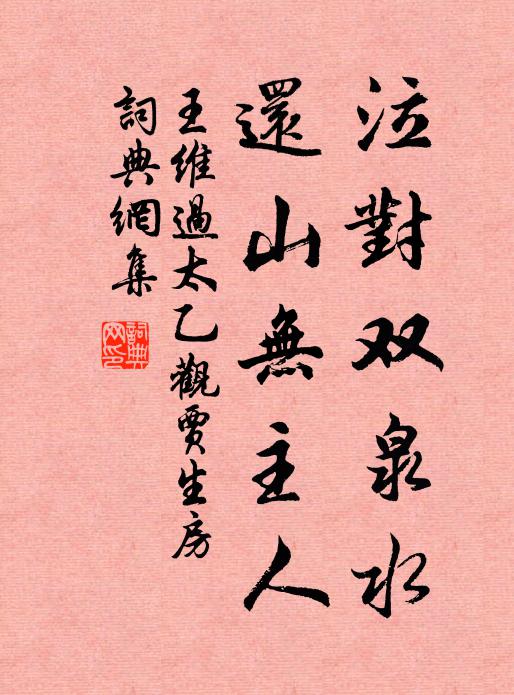 泣對双泉水
還山無主人
王維過太乙觀賈生房
詞典網集
詞典网印